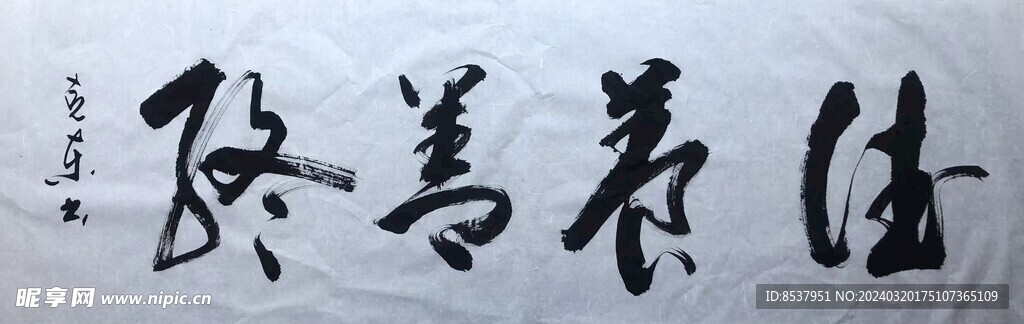 德养善终
克东书
昵享网 www.nipic.cn
ID:8537951 NO:20240320175107365109